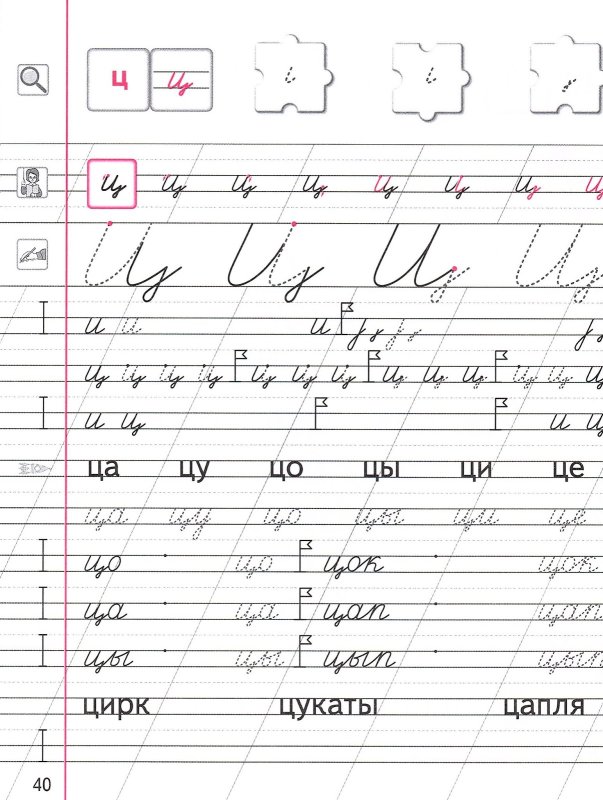 ц ц
ц ц ц ц ц ц ц ц
ц ц ц ц
и и и
ц ц ц ц ц ц ц ц ц ц ц ц ц
и ц и ц
ца цу цо цы ци це
ца цу цо цы ци це
цо цо цок цок
ца ца цап цап
цы цы цып цып
цирк цукаты цапля
40